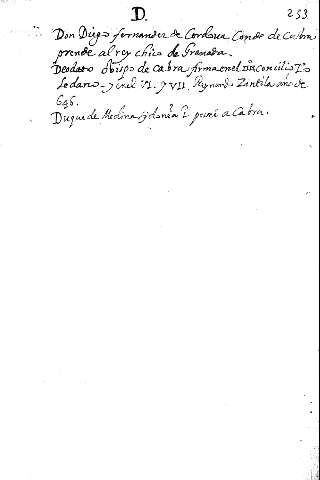 D.
253
Don Diego fernandez de Cordova Conde de Cabra
prende al rey chico de Granada.
Deodato obispo de cabra firma en el concilio To
ledano. y en el VI. y VII Reynando Zintila año de
646.
Duque de Medina sidonia a Cabra.